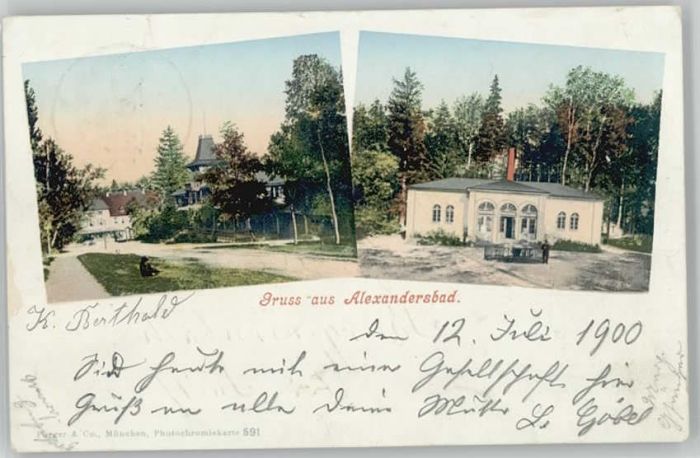 Gruss aus Alexandersbad.
K. Berthold
den 12. Juli 1900
Sind heute mit einer Gesellschaft hier
Gruß an alle Deine Mutter L. Göbel
Purger & Co., München, Photochromiekarte 591